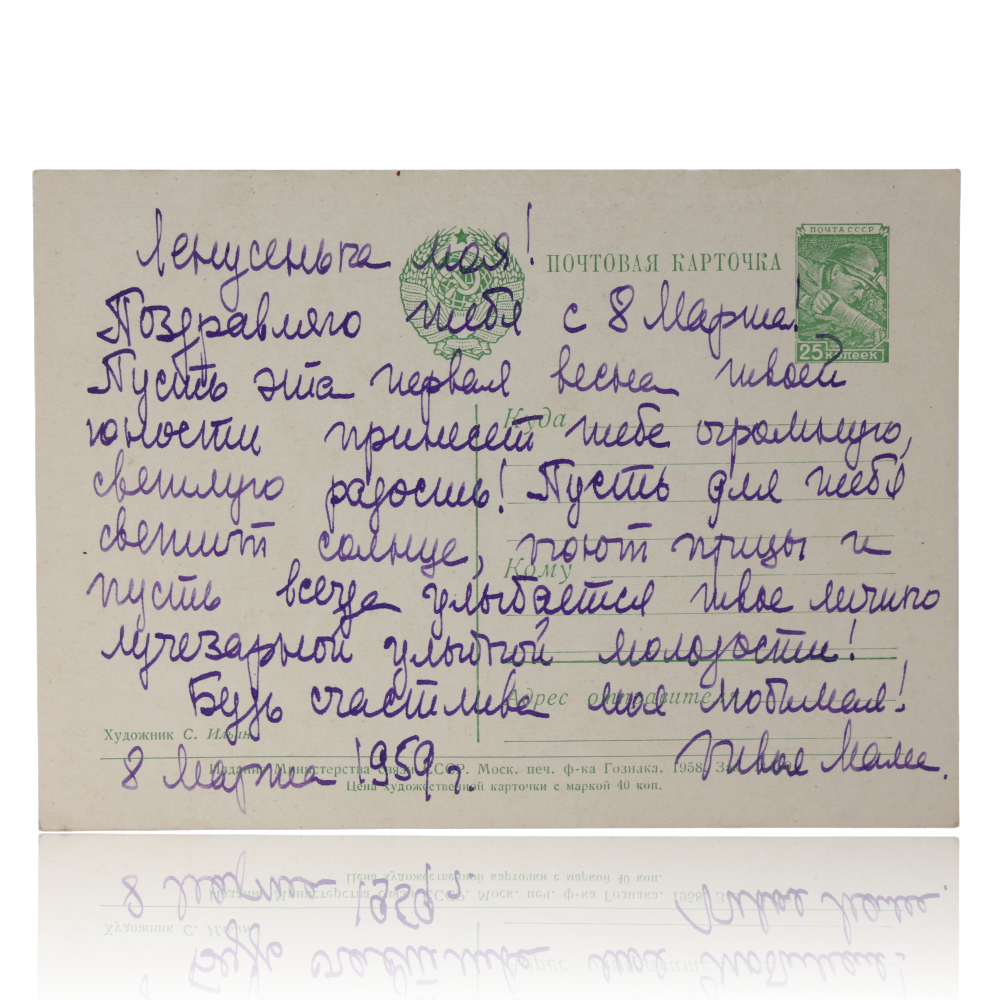 Ленусенька моя!
ПОЧТОВАЯ КАРТОЧКА
ПОЧТА СССР
25 КОПЕЕК
Поздравляю тебя с 8 Марта!
Пусть эта первая весна твоей
юности принесет тебе огромную,
светлую радость! Пусть для тебя
светит солнце, поют птицы и
пусть всегда улыбается твое личико
лучезарной улыбкой молодости!
Будь счастлива моя любимая!
Твоя Мама.
8 Марта 1959 г.
Куда
Кому
Адрес отправителя
Художник С. Ильин
Издание Министерства связи СССР. Моск. печ. ф-ка Гознака. 1958.
Цена художественной карточки с маркой 40 коп.